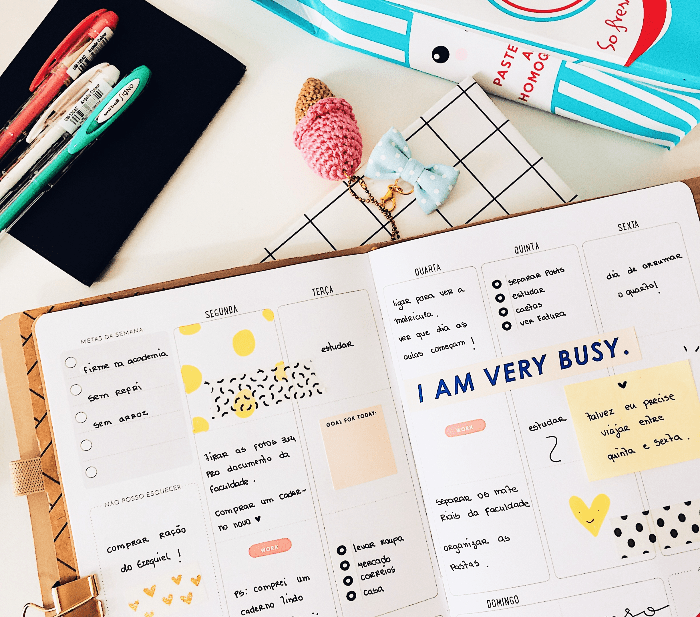 So fresh
PASTE
A
HOMOG
METAS DA SEMANA
firme na academia
sem refri
sem arroz
NÃO POSSO ESQUECER
comprar ração
do Ezequiel !
SEGUNDA
tirar as fotos 3x4
pro documento da
faculdade.
comprar um cader-
no novo ♥
WORK
PS: comprei um
caderno lindo
TERÇA
estudar
GOAL FOR TODAY:
levar roupa
mercado
correios
casa
QUARTA
ligar para ver a
matrícula.
ver que dia as
aulas começam !
I AM VERY BUSY.
WORK
separar os mate
riais da faculdade
organizar as
pastas.
QUINTA
separar posts
estudar
cartas
ver fatura
estudar
SEXTA
dia de arrumar
o quarto!
♥
talvez eu precise
viajar entre
quinta e sexta.
DOMINGO